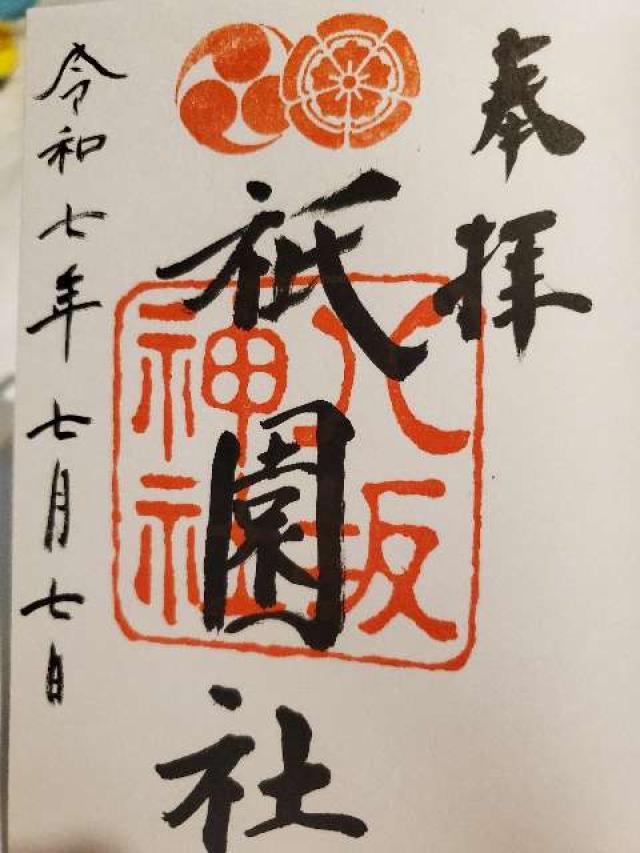 奉拝
八坂神社
祇園社
令和七年七月七日